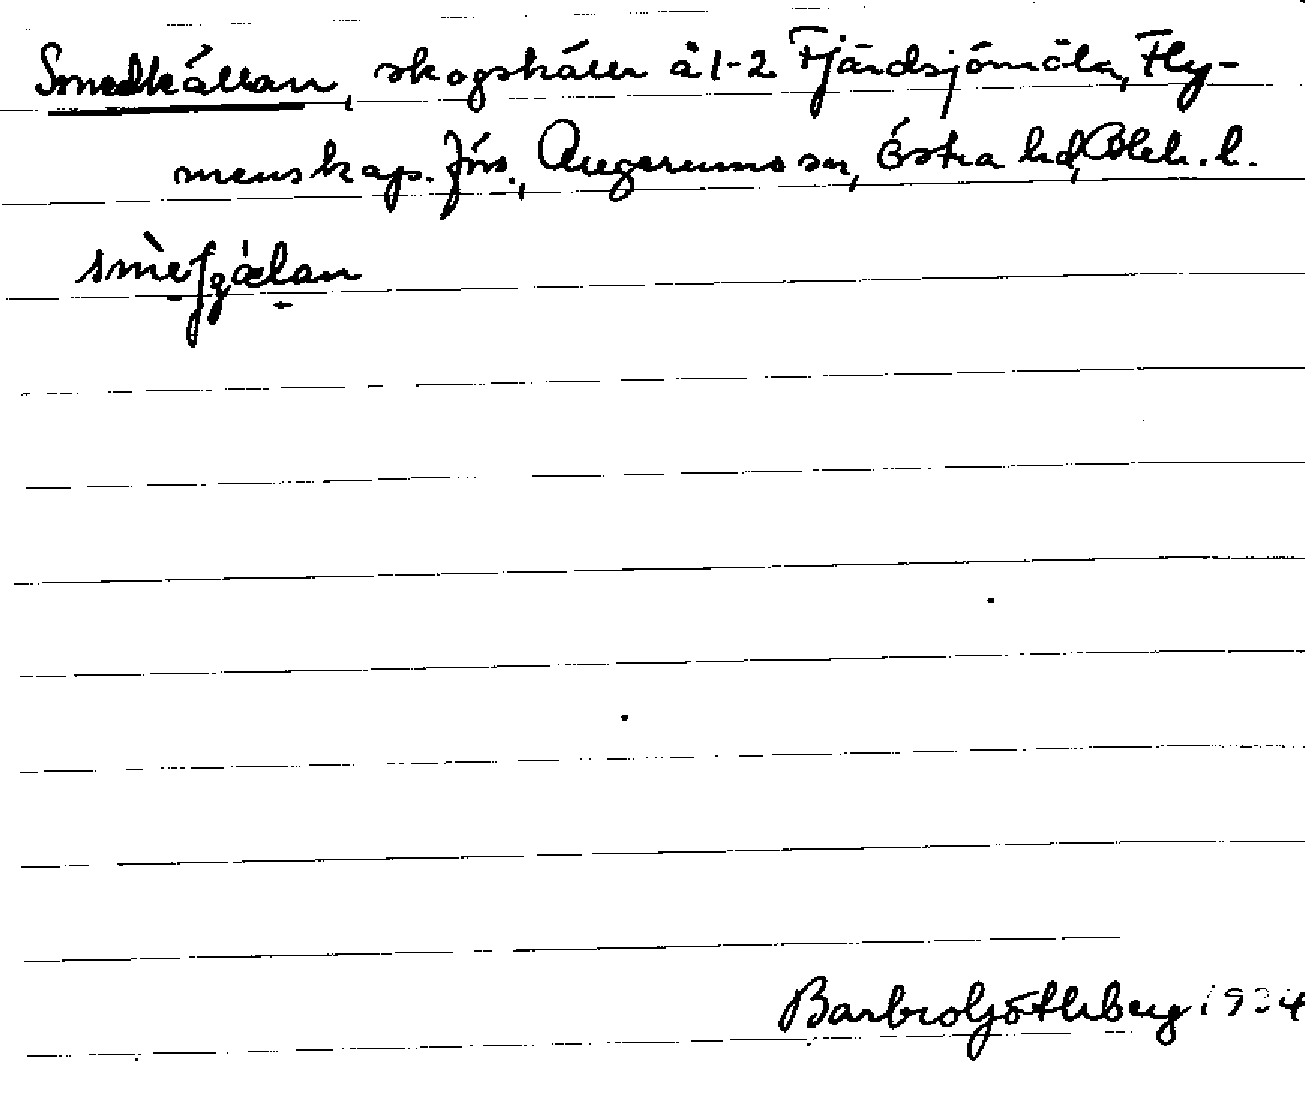 Smedkällan, skogskälla å 1-2 Fjärdsjömåla, Fly-
menskap. förs., Augerums sn, Östra hd, Blek. l.
smèfgälan
Barbro Göthberg 1934